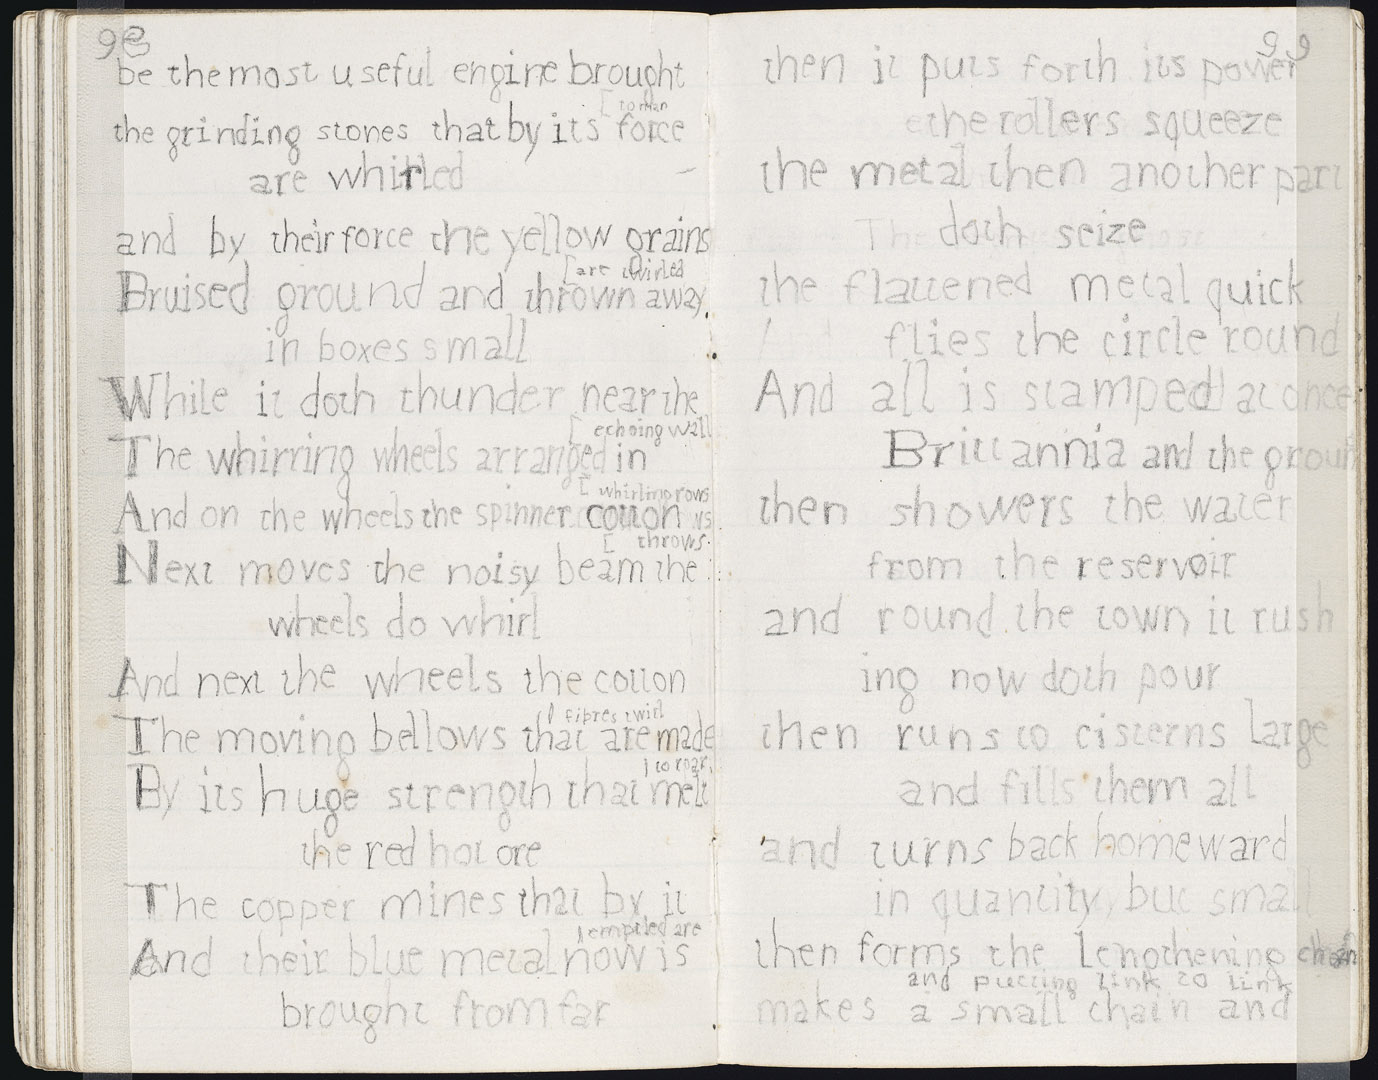 98
be the most useful engine brought
[to man
the grinding stones that by its force
are whirled
and by their force the yellow grains
[are whirled
Bruised ground and thrown away
in boxes small
While it doth thunder near the
[echoing wall
The whirring wheels arranged in
[whirling rows
And on the wheels the spinner cotton
[throws
Next moves the noisy beam the
wheels do whirl
And next the wheels the cotton
[fibres twirl
The moving bellows that are made
[to roar
By its huge strength that melt
the red hot ore
The copper mines that by it
[emptied are
And their blue metal now is
brought from far
99
then it puts forth its power
the rollers squeeze
the metal then another part
doth seize
the flattened metal quick
flies the circle round
And all is stamped at once
Brittannia and the groun
then showers the water
from the reservoir
and round the town it rush
ing now doth pour
then runs to cisterns large
and fills them all
and turns back homeward
in quantity but small
then forms the lengthening chain
and putting link to link
makes a small chain and